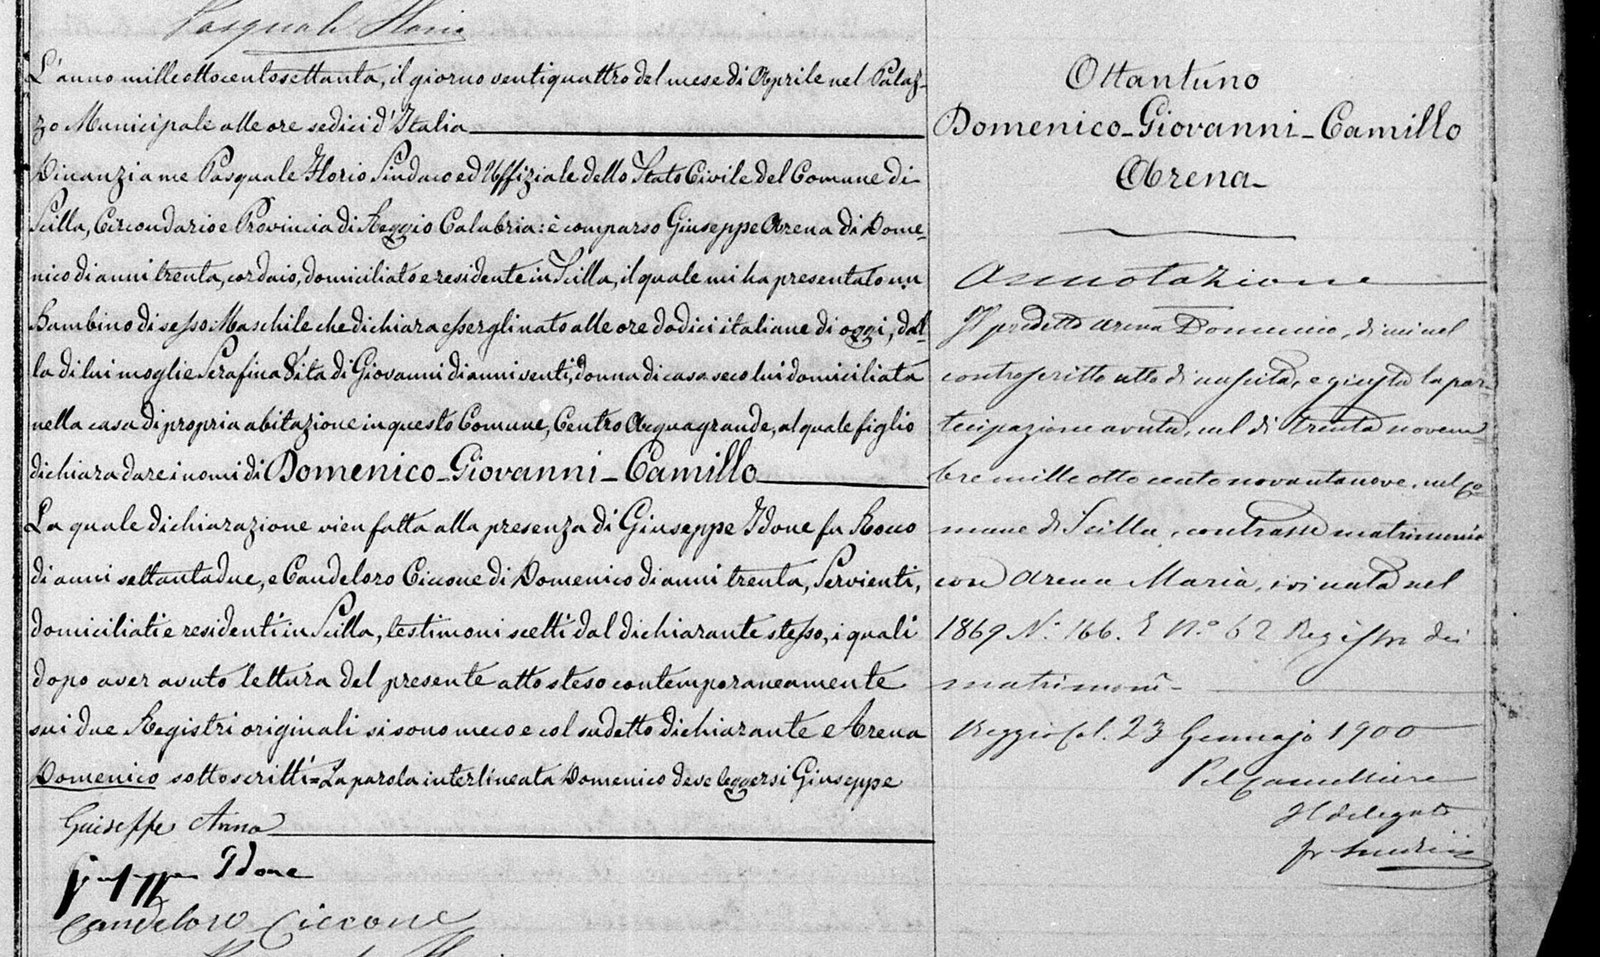 Pasquale Florio
L'anno milleottocentosettanta, il giorno ventiquattro del mese di Aprile nel Palaz-
zo Municipale alle ore sedici d'Italia
Dinanzi a me Pasquale Florio Sindaco ed Uffiziale dello Stato Civile del Comune di
Scilla, Circondario e Provincia di Reggio Calabria: è comparso Giuseppe Arena di Dome-
nico di anni trenta, cordaio, domiciliato e residente in Scilla, il quale mi ha presentato un
Bambino di sesso Maschile che dichiara essergli nato alle ore dodici italiane di oggi, dal-
la di lui moglie Serafina Vita di Giovanni di anni venti, donna di casa seco lui domiciliata
nella casa di propria abitazione in questo Comune, Centro Acquagrande, al quale figlio
dichiara dare i nomi di Domenico-Giovanni-Camillo
La quale dichiarazione vien fatta alla presenza di Giuseppe Idone fu Rocco
di anni settantadue, e Candeloro Ciccone di Domenico di anni trenta, Servienti,
domiciliati e residenti in Scilla, testimoni scelti dal dichiarante stesso, i quali
dopo aver avuto lettura del presente atto steso contemporaneamente
sui due Registri originali si sono meco e col sudetto dichiarante e Arena
Domenico sottoscritti=La parola interlineata Domenico deve leggersi Giuseppe
Giuseppe Arena
Giuseppe Idone
Candeloro Ciccone
Ottantuno
Domenico-Giovanni-Camillo
Arena
Annotazione
Il predetto Arena Domenico, di cui nel
controscritto atto di nascita, e giusta la par-
tecipazione avuta, nel dì trenta novem-
bre mille otto cento novantanove, nel Co-
mune di Scilla, contrasse matrimonio
con Arena Maria, ivi nata nel
1869 N.° 166. E N.° 62 Registro dei
matrimoni-
Reggio Cal. 23 Gennajo 1900
Pel Cancelliere
Il delegato